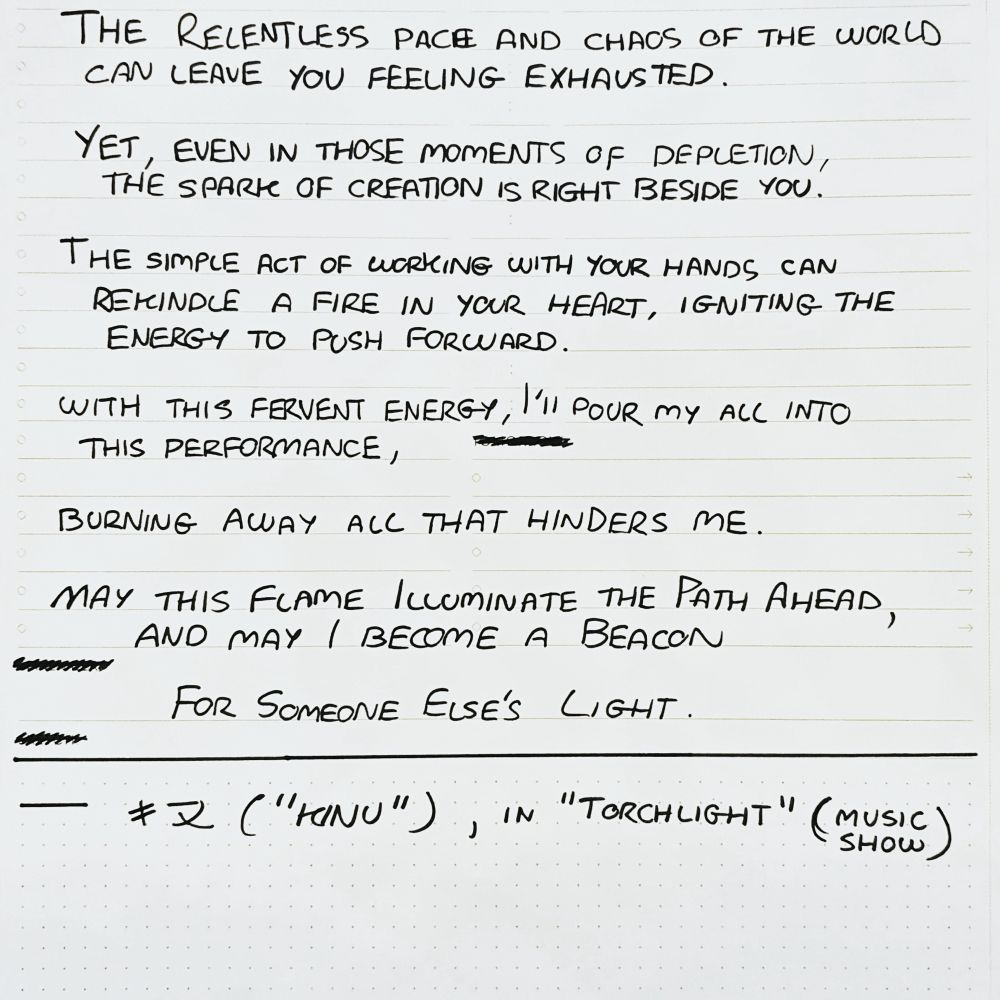 THE RELENTLESS PACE AND CHAOS OF THE WORLD
CAN LEAVE YOU FEELING EXHAUSTED.
YET, EVEN IN THOSE MOMENTS OF DEPLETION,
THE SPARK OF CREATION IS RIGHT BESIDE YOU.
THE SIMPLE ACT OF WORKING WITH YOUR HANDS CAN
REKINDLE A FIRE IN YOUR HEART, IGNITING THE
ENERGY TO PUSH FORWARD.
WITH THIS FERVENT ENERGY, I'll POUR MY ALL INTO
THIS PERFORMANCE,
BURNING AWAY ALL THAT HINDERS ME.
MAY THIS FLAME ILLUMINATE THE PATH AHEAD,
AND MAY I BECOME A BEACON
FOR SOMEONE ELSE'S LIGHT.
— キヌ ("KINU"), IN "TORCHLIGHT" (MUSIC
SHOW)